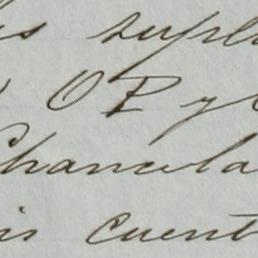 is supl
OP y
Chancela
is cuent